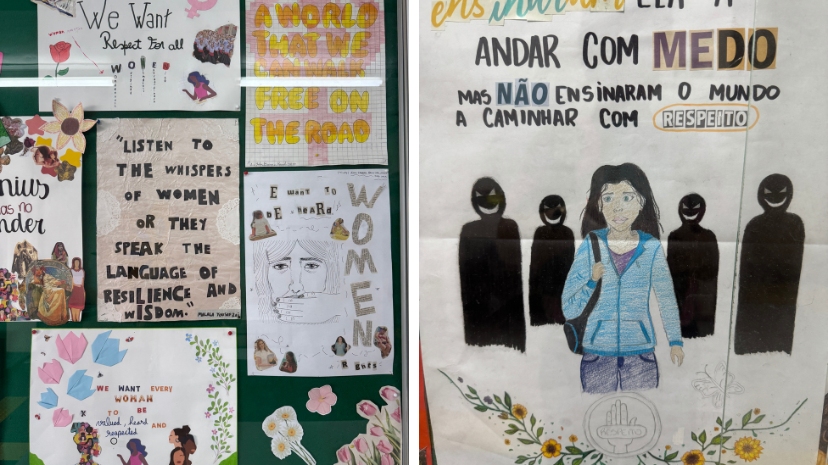 We Want
Respect For all
A WORLD
THAT WE
FREE ON
THE ROAD
"LISTEN TO
THE WHISPERS
OF WOMEN
OR THEY
SPEAK THE
LANGUAGE OF
RESILIENCE AND
WISDOM."
WE WANT TO
BE HEARD
WOMEN
WE WANT EVERY
WOMAN
TO BE
valued, heard
AND
respected
ensinaram ELA A
ANDAR COM MEDO
MAS NÃO ENSINARAM O MUNDO
A CAMINHAR COM RESPEITO